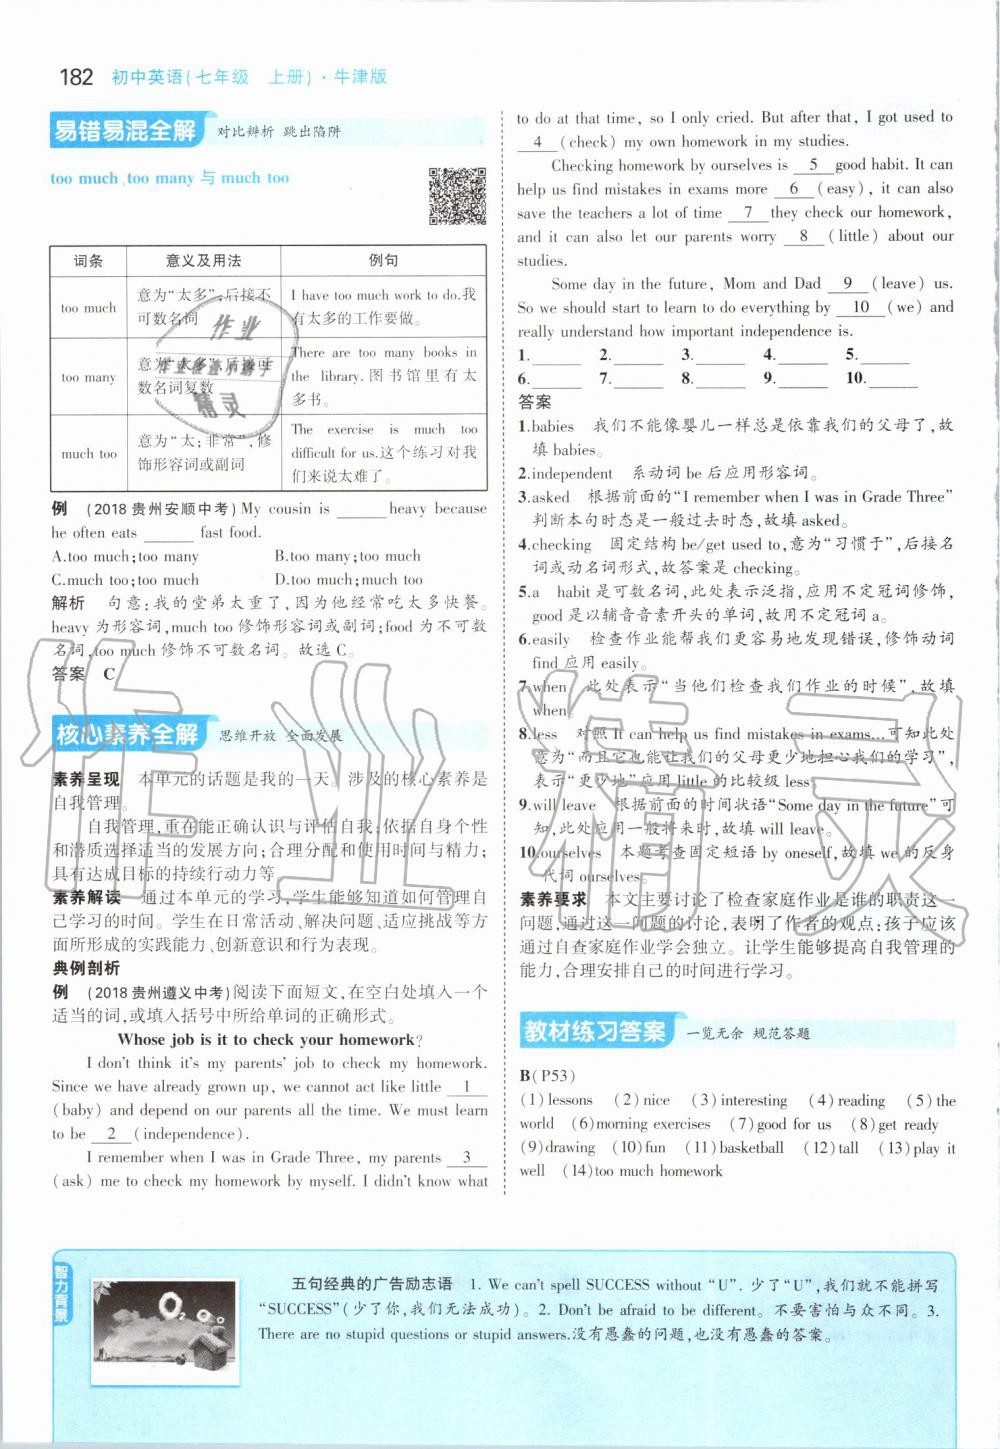 182 初中英语(七年级 上册)·牛津版
易错易混全解 对比辨析 跳出陷阱
too much、too many 与 much too
词条 意义及用法 例句
too much 意为“太多”,后接不可数名词 I have too much work to do.我有太多的工作要做。
too many 意为“太多”,后接可数名词复数 There are too many books in the library.图书馆里有太多书。
much too 意为“太;非常”,修饰形容词或副词 The exercise is much too difficult for us.这个练习对我们来说太难了。
例 (2018贵州安顺中考)My cousin is ______ heavy because
he often eats ______ fast food.
A.too much;too many B.too many;too much
C.much too;too much D.too much;much too
解析 句意:我的堂弟太重了,因为他经常吃太多快餐。
heavy为形容词,much too修饰形容词或副词;food为不可数
名词,too much修饰不可数名词。故选C。
答案 C
核心素养全解 思维开放 全面发展
素养呈现 本单元的话题是我的一天。涉及的核心素养是
自我管理。
自我管理,重在能正确认识与评估自我;依据自身个性
和潜质选择适当的发展方向;合理分配和使用时间与精力;
具有达成目标的持续行动力等。
素养解读 通过本单元的学习,学生能够知道如何管理自
己学习的时间。学生在日常活动、解决问题、适应挑战等方
面所形成的实践能力、创新意识和行为表现。
典例剖析
例 (2018贵州遵义中考)阅读下面短文,在空白处填入一个
适当的词,或填入括号中所给单词的正确形式。
Whose job is it to check your homework?
I don't think it's my parents' job to check my homework.
Since we have already grown up, we cannot act like little 1
(baby) and depend on our parents all the time. We must learn
to be 2 (independence).
I remember when I was in Grade Three, my parents 3
(ask) me to check my homework by myself. I didn't know what
to do at that time, so I only cried. But after that, I got used to
4 (check) my own homework in my studies.
Checking homework by ourselves is 5 good habit. It can
help us find mistakes in exams more 6 (easy), it can also
save the teachers a lot of time 7 they check our homework,
and it can also let our parents worry 8 (little) about our
studies.
Some day in the future, Mom and Dad 9 (leave) us.
So we should start to learn to do everything by 10 (we) and
really understand how important independence is.
1.______ 2.______ 3.______ 4.______ 5.______
6.______ 7.______ 8.______ 9.______ 10.______
答案
1.babies 我们不能像婴儿一样总是依靠我们的父母了,故
填babies。
2.independent 系动词be后应用形容词。
3.asked 根据前面的“I remember when I was in Grade Three”
判断本句时态是一般过去时态,故填asked。
4.checking 固定结构be/get used to,意为“习惯于”,后接名
词或动名词形式,故答案是checking。
5.a habit是可数名词,此处表示泛指,应用不定冠词修饰,
good是以辅音音素开头的单词,故用不定冠词a。
6.easily 检查作业能帮我们更容易地发现错误,修饰动词
find应用easily。
7.when 此处表示“当他们检查我们作业的时候”,故填
when。
8.less 对照It can help us find mistakes in exams...可知此处
意为“而且它也能让我们的父母更少地担心我们的学习”,
表示“更少地”应用little的比较级less。
9.will leave 根据前面的时间状语“Some day in the future”可
知,此处应用一般将来时,故填will leave。
10.ourselves 本题考查固定短语by oneself,故填we的反身
代词ourselves。
素养要求 本文主要讨论了检查家庭作业是谁的职责这一
问题,通过这一问题的讨论,表明了作者的观点:孩子应该
通过自查家庭作业学会独立。让学生能够提高自我管理的
能力,合理安排自己的时间进行学习。
教材练习答案 一览无余 规范答题
B(P53)
(1)lessons (2)nice (3)interesting (4)reading (5)the
world (6)morning exercises (7)good for us (8)get ready
(9)drawing (10)fun (11)basketball (12)tall (13)play it
well (14)too much homework
智力背景
五句经典的广告励志语 1. We can't spell SUCCESS without “U”. 少了“U”,我们就不能拼写
“SUCCESS”(少了你,我们无法成功)。2. Don't be afraid to be different. 不要害怕与众不同。3.
There are no stupid questions or stupid answers.没有愚蠢的问题,也没有愚蠢的答案。
作业精灵